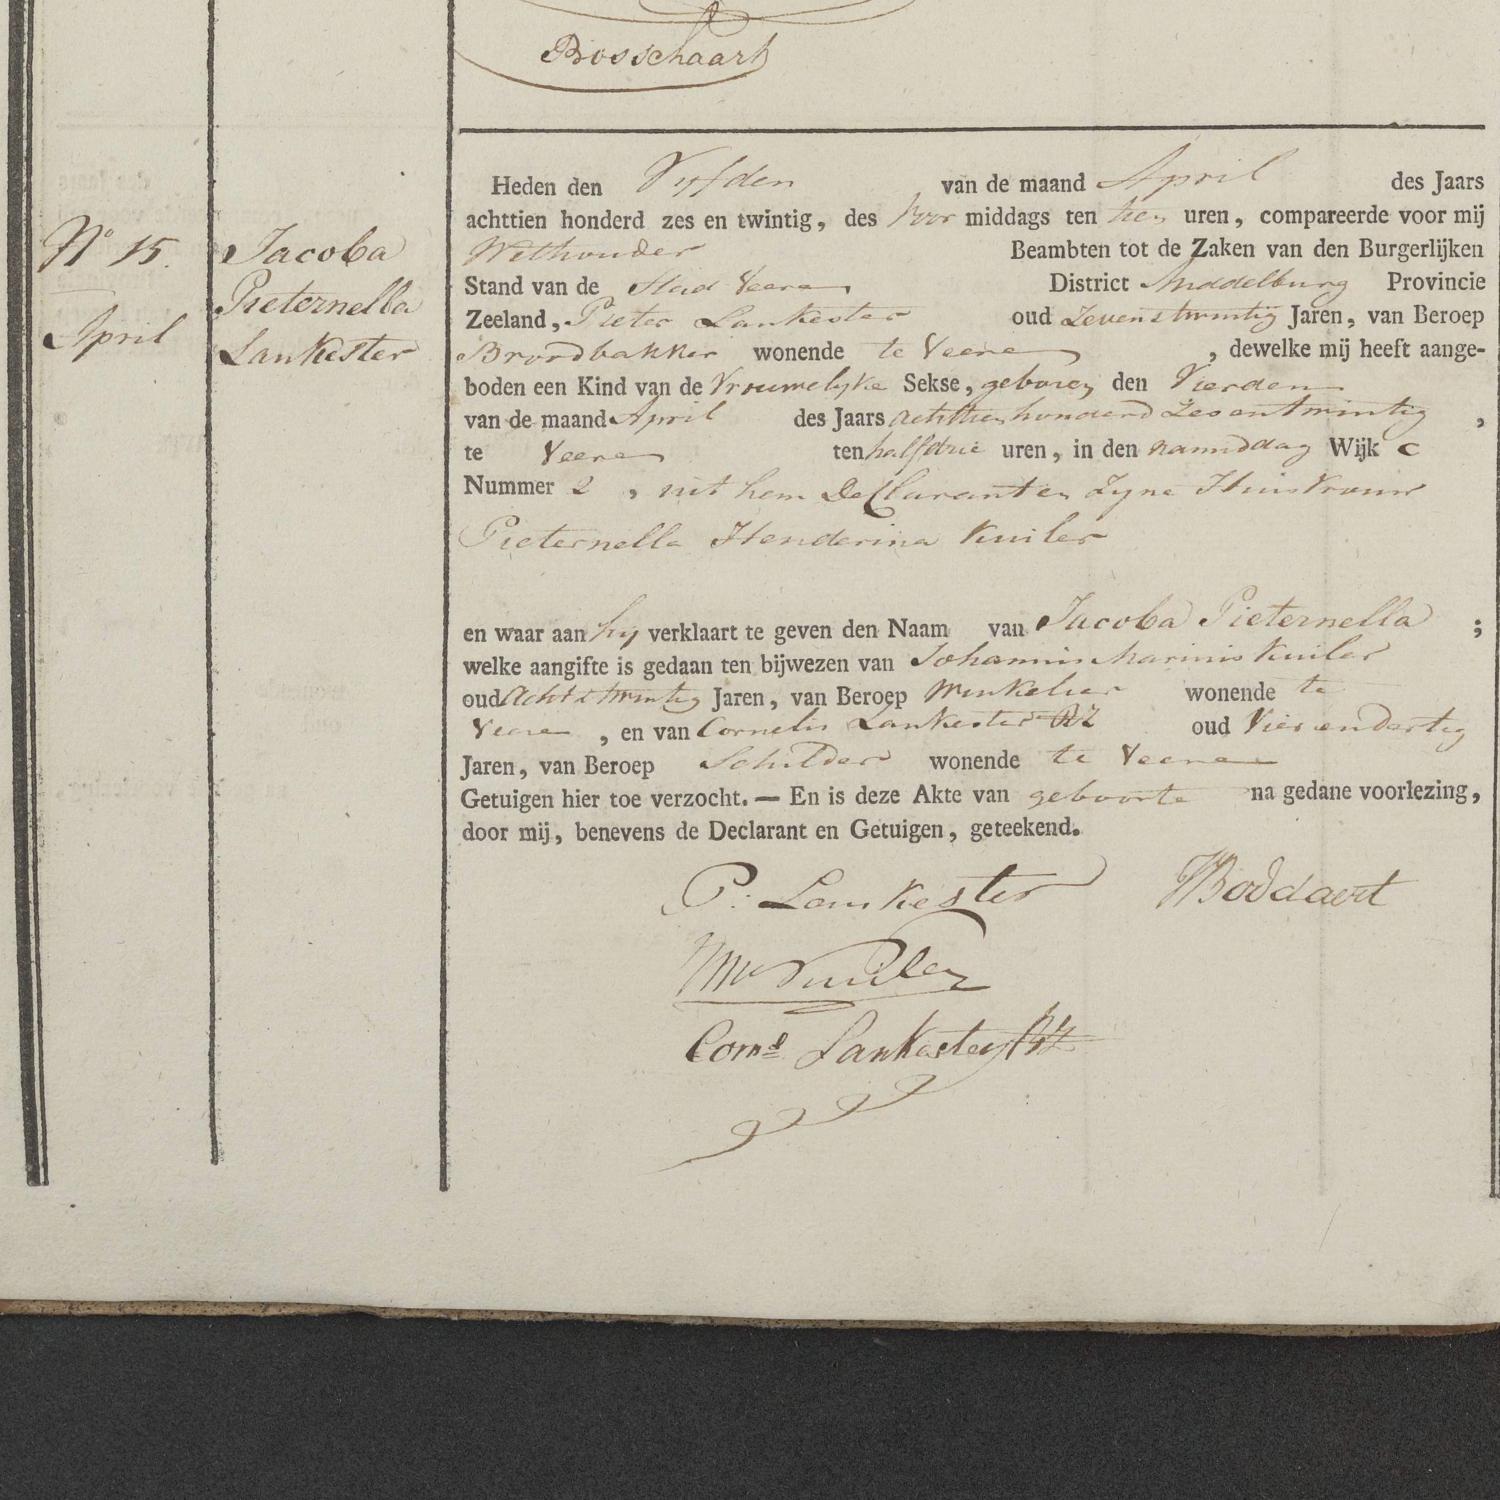 Bosschaart
Heden den Vyfden van de maand April des Jaars
achttien honderd zes en twintig, des Voor middags ten tien uren, compareerde voor mij
Wethouder Beambten tot de Zaken van den Burgerlijken
Stand van de Stad Veere District Middelburg Provincie
Zeeland, Pieter Lankester oud Zevenstwintig Jaren, van Beroep
Broodbakker wonende te Veere, dewelke mij heeft aange-
boden een Kind van de Vrouwelyke Sekse, geboren den Vierden
van de maand April des Jaars achttien honderd Zes en twintig,
te Veere ten half drie uren, in den namiddag Wijk C
Nummer 2, uit hem Declarant en Zyne Huisvrouw
Pieternella Henderina Kuiler
en waar aan hy verklaart te geven den Naam van Jacoba Pieternella;
welke aangifte is gedaan ten bijwezen van Johannis Marinis Kuiler
oud Achtstwintig Jaren, van Beroep Winkelier wonende te
Veere, en van Cornelis Lankester RZ oud Vier en dertig
Jaren, van Beroep Schilder wonende te Veere
Getuigen hier toe verzocht. — En is deze Akte van geboorte na gedane voorlezing,
door mij, benevens de Declarant en Getuigen, geteekend.
N° 15.
April
Jacoba
Pieternella
Lankester
P. Lankester Boddaert
Corns Lankester RZ